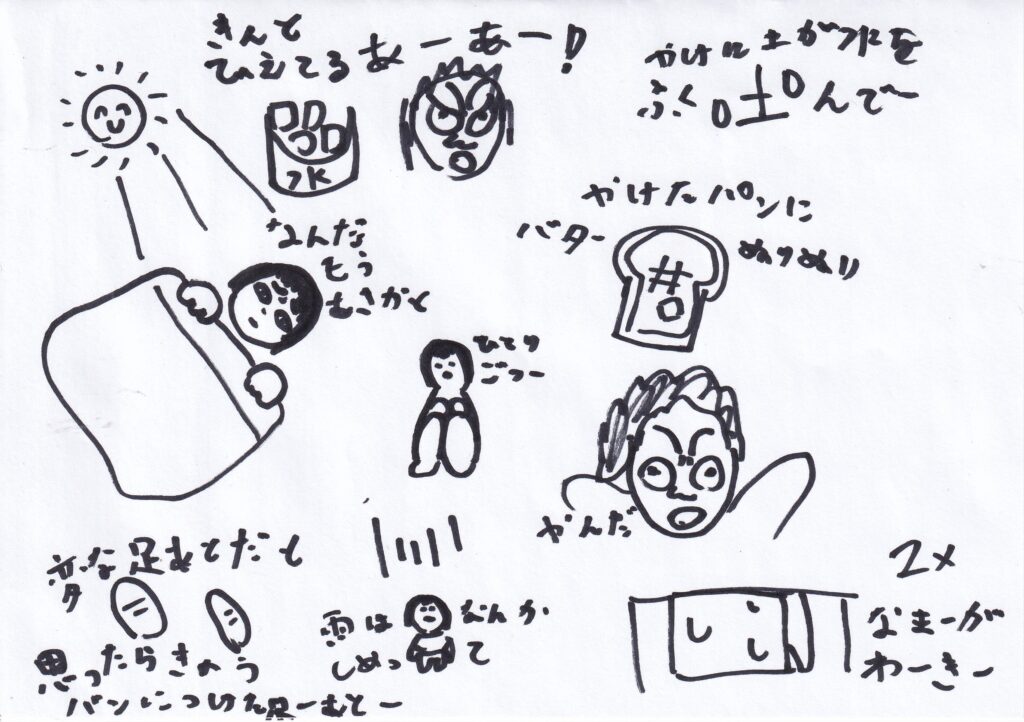 きんと
ひえてる あーあー!
水
やけに土がフルを
ふくロ土ロんで〜
なんだ
そう
むさかと
やけたパンに
バター
ぬりぬり
ひとり
ごつー
かんだ
変な足あとだと
思ったらきのう
パンにつけた
むとー
雨は なんか
しめって
2×
なまーが
わーきー